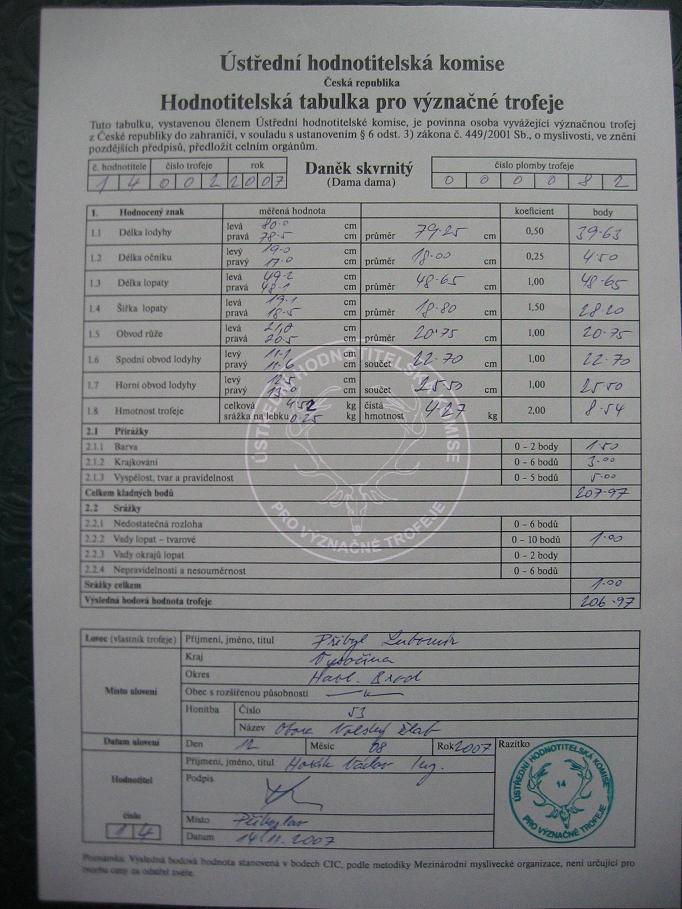 Ústřední hodnotitelská komise
Česká republika
Hodnotitelská tabulka pro význačné trofeje
Tuto tabulku, vystavenou členem Ústřední hodnotitelské komise, je povinna osoba vyvážející význačnou trofej
z České republiky do zahraničí, v souladu s ustanovením § 6 odst. 3) zákona č. 449/2001 Sb., o myslivosti, ve znění
pozdějších předpisů, předložit celním orgánům.
č. hodnotitele číslo trofeje rok Daněk skvrnitý číslo plomby trofeje
1 4 0 0 2 2 0 0 7 (Dama dama) 0 0 0 0 8 2
1. Hodnocený znak měřená hodnota koeficient body
1.1 Délka lodyhy levá 80.0 cm
pravá 78.5 cm průměr 79.25 cm 0,50 39.63
1.2 Délka očníku levý 19.0 cm
pravý 17.0 cm průměr 18.00 cm 0,25 4.50
1.3 Délka lopaty levá 49.2 cm
pravá 48.1 cm průměr 48.65 cm 1,00 48.65
1.4 Šířka lopaty levá 19.1 cm
pravá 18.5 cm průměr 18.80 cm 1,50 28.20
1.5 Obvod růže levá 21,0 cm
pravá 20.5 cm průměr 20.75 cm 1,00 20.75
1.6 Spodní obvod lodyhy levý 11.1 cm
pravý 11.6 cm součet 22.70 cm 1,00 22.70
1.7 Horní obvod lodyhy levý 12.5 cm
pravý 13.0 cm součet 25.50 cm 1,00 25.50
1.8 Hmotnost trofeje celková 4.52 kg čistá
srážka na lebku 0.25 kg hmotnost 4.27 kg 2,00 8.54
2.1 Přirážky
2.1.1 Barva 0 – 2 body 1.50
2.1.2 Krajkování 0 – 6 bodů 3.00
2.1.3 Vyspělost, tvar a pravidelnost 0 – 5 bodů 5.00
Celkem kladných bodů 207.97
2.2 Srážky
2.2.1 Nedostatečná rozloha 0 – 6 bodů
2.2.2 Vady lopat – tvarové 0 – 10 bodů 1.00
2.2.3 Vady okrajů lopat 0 – 2 body
2.2.4 Nepravidelnosti a nesouměrnost 0 – 6 bodů
Srážky celkem 1.00
Výsledná bodová hodnota trofeje 206.97
ÚSTŘEDNÍ HODNOTITELSKÁ KOMISE
PRO VÝZNAČNÉ TROFEJE
Lovec (vlastník trofeje) Příjmení, jméno, titul Přibyl Lubomír
Místo ulovení Kraj Vysočina
Okres Havl. Brod
Obec s rozšířenou působností
Honitba Číslo 53
Název Obora
Datum ulovení Den 12 Měsíc 08 Rok 2007 Razítko
Hodnotitel Příjmení, jméno, titul Horák Václav Ing.
Podpis
číslo
1 4 Místo Přibyslav
Datum 14/11.2007
ÚSTŘEDNÍ HODNOTITELSKÁ KOMISE
14
PRO VÝZNAČNÉ TROFEJE
Poznámka: Výsledná bodová hodnota stanovená v bodech CIC, podle metodiky Mezinárodní myslivecké organizace, není určující pro
tvorbu ceny za odstřel zvěře.